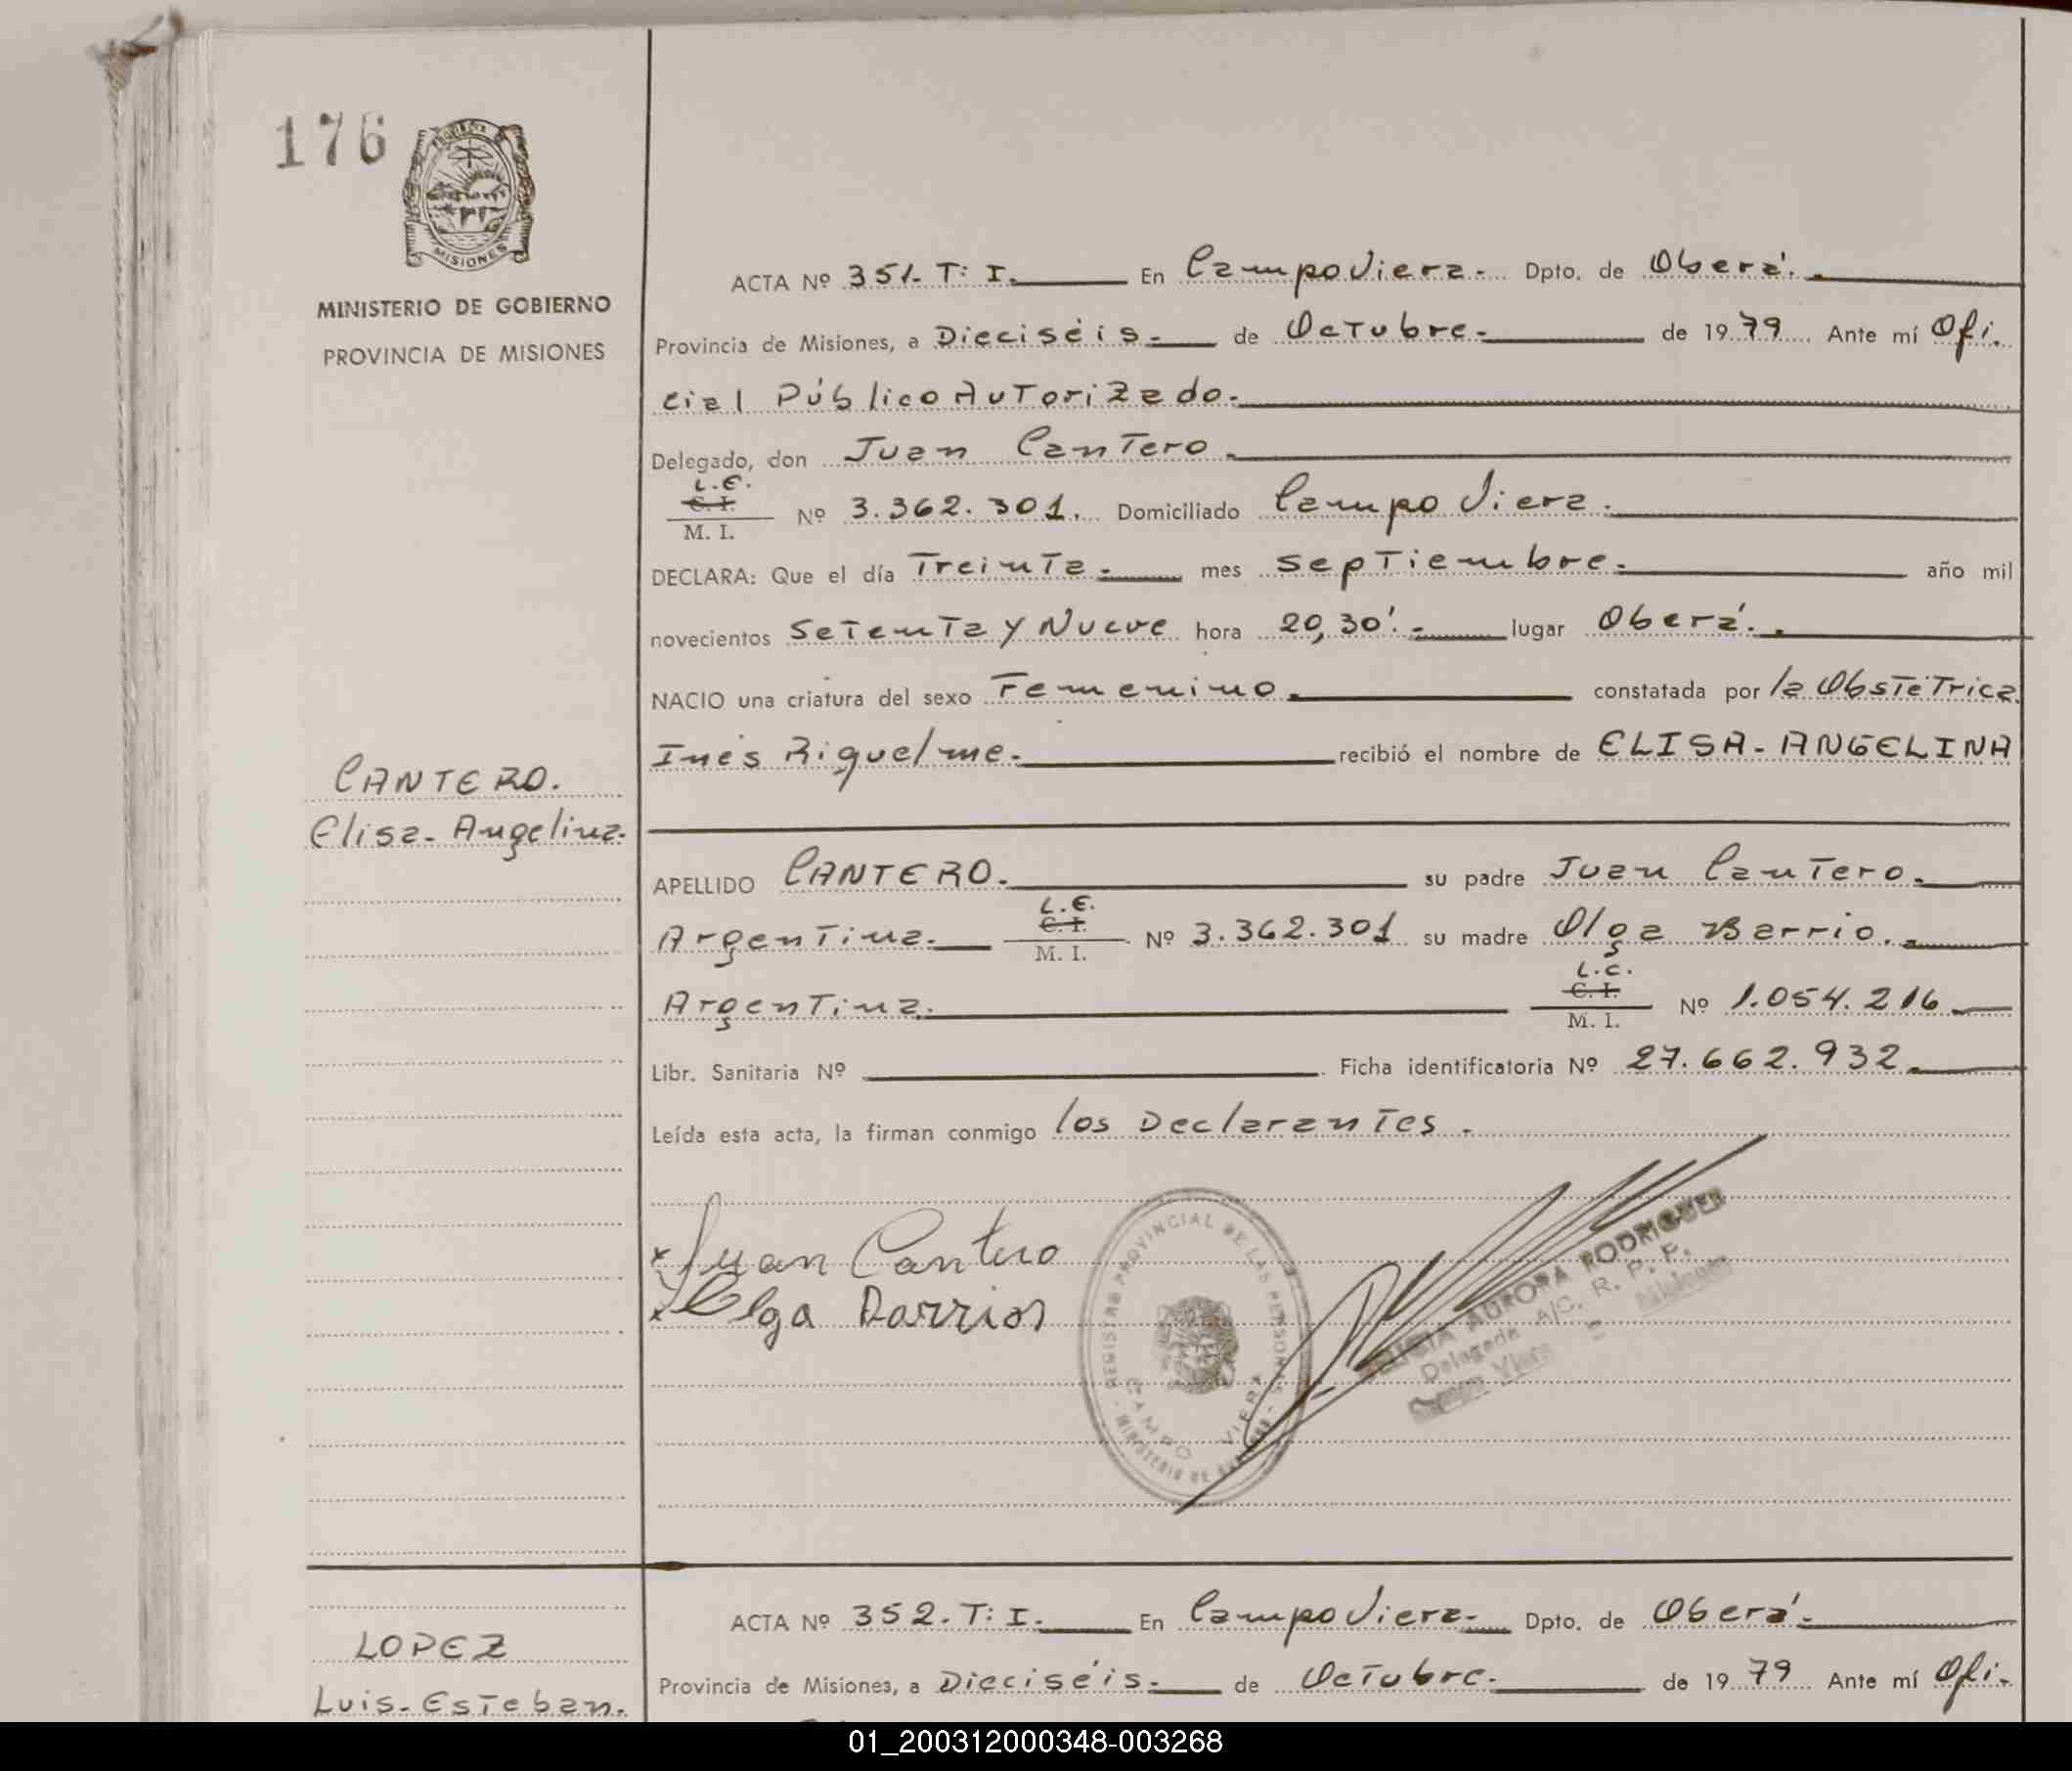 176
PROVINCIA
MISIONES
MINISTERIO DE GOBIERNO
PROVINCIA DE MISIONES
ACTA Nº 351. T: I. En Campo Viera. Dpto. de Oberá.
Provincia de Misiones, a Dieciséis. de Octubre. de 1979 Ante mí Ofi.
cial Público Autorizado.
Delegado, don Juan Cantero.
L.E.
C. I.
M. I. Nº 3.362.301. Domiciliado Campo Viera.
DECLARA: Que el día Treinta. mes Septiembre. año mil
novecientos Setenta y Nueve hora 20,30'. lugar Oberá.
NACIO una criatura del sexo Femenino. constatada por la Obstétrica
Inés Riquelme. recibió el nombre de ELISA-ANGELINA
CANTERO.
Elisa-Angelina.
APELLIDO CANTERO. su padre Juan Cantero.
L.E.
C. I.
Argentina. M. I. Nº 3.362.301 su madre Olga Barrio.
L.C.
C. I.
Argentina. M. I. Nº 1.054.216
Libr. Sanitaria Nº Ficha identificatoria Nº 27.662.932
Leída esta acta, la firman conmigo los Declarantes.
x Juan Cantero
x Olga Barrios
REGISTRO PROVINCIAL DE LAS PERSONAS
CAMPO VIERA
MINISTERIO DE
AURORA RODRIGUEZ
Delegada A/C. R. P. P.
Viera
ACTA Nº 352. T: I. En Campo Viera. Dpto. de Oberá.
LOPEZ
Luis-Esteban.
Provincia de Misiones, a Dieciséis. de Octubre. de 1979 Ante mí Ofi.
01_200312000348-003268